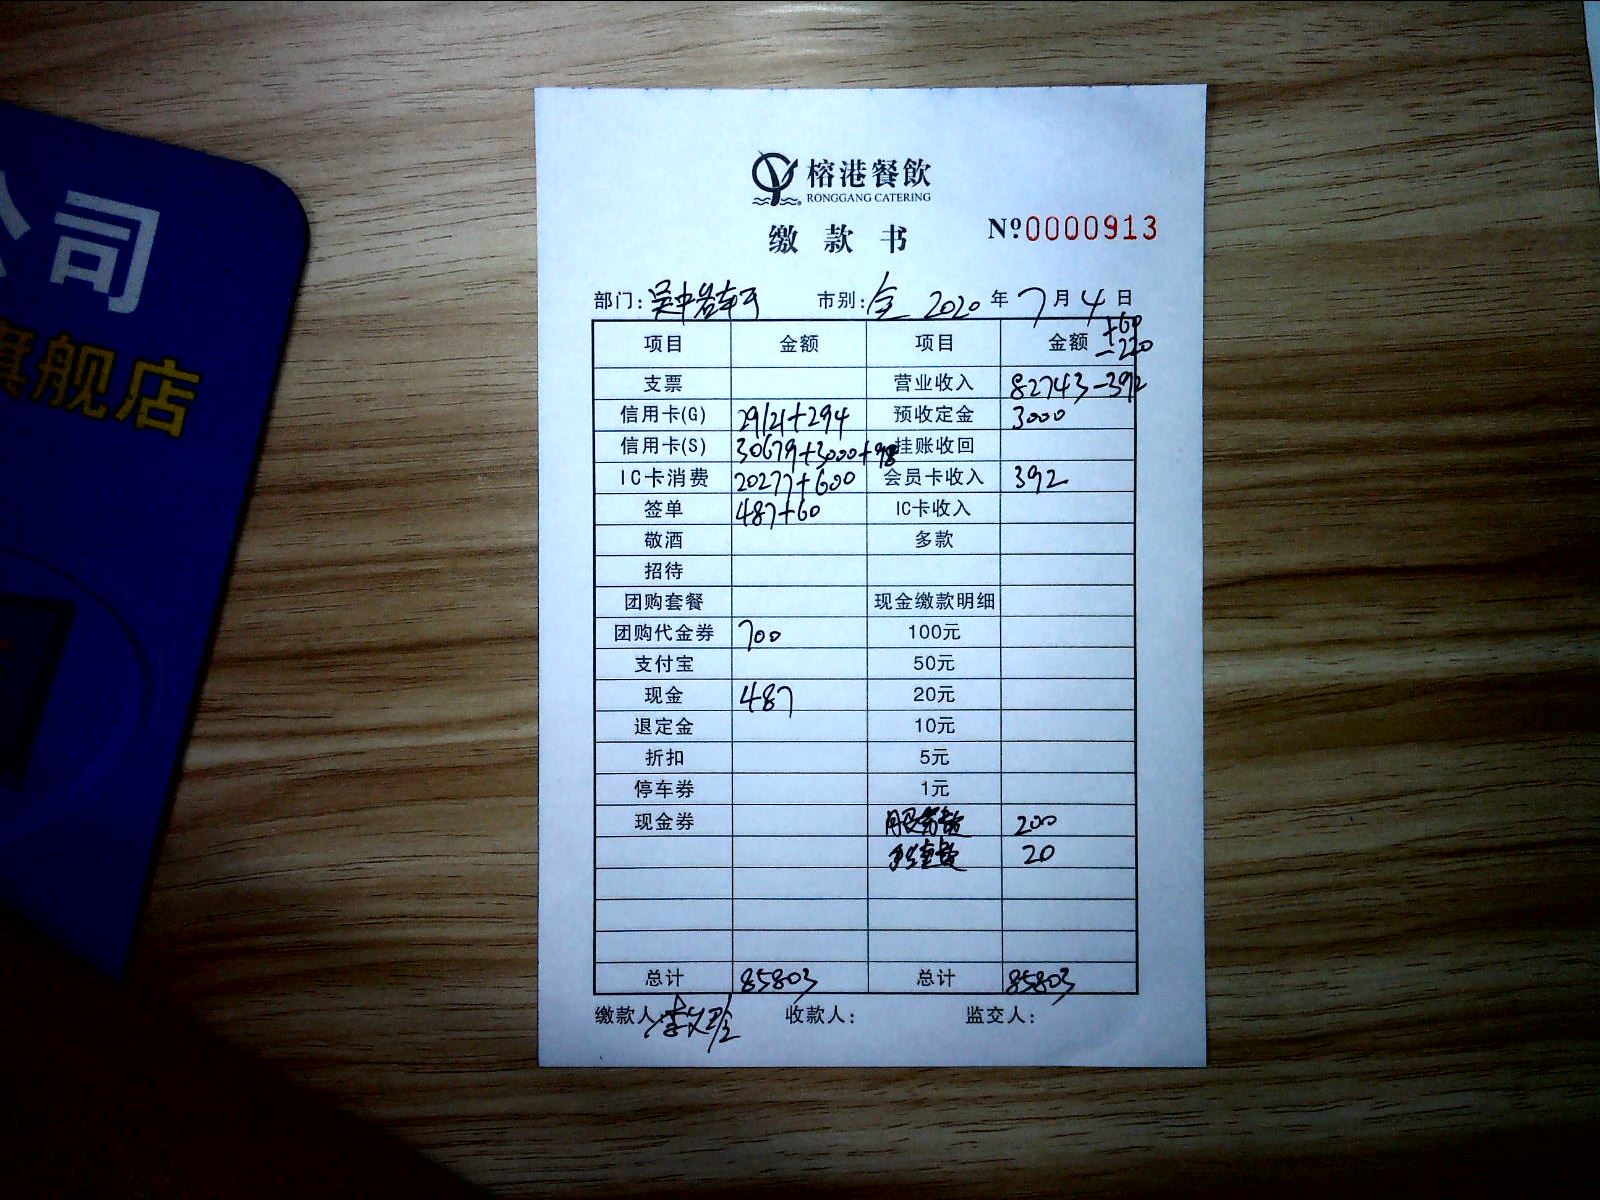 公司
旗舰店
榕港餐飲
RONGGANG CATERING
缴款书 Nº0000913
部门: 吴中 市别: 全 2020 年 7 月 4 日
+60
项目 金额 项目 金额 -220
支票 营业收入 82743-392
信用卡(G) 29121+294 预收定金 3000
信用卡(S) 30679+3000+98 挂账收回
IC卡消费 20277+600 会员卡收入 392
签单 487+60 IC卡收入
敬酒 多款
招待
团购套餐 现金缴款明细
团购代金券 700 100元
支付宝 50元
现金 487 20元
退定金 10元
折扣 5元
停车券 1元
现金券 服务费 200
20
总计 85803 总计 85803
缴款人: 李 收款人: 监交人: